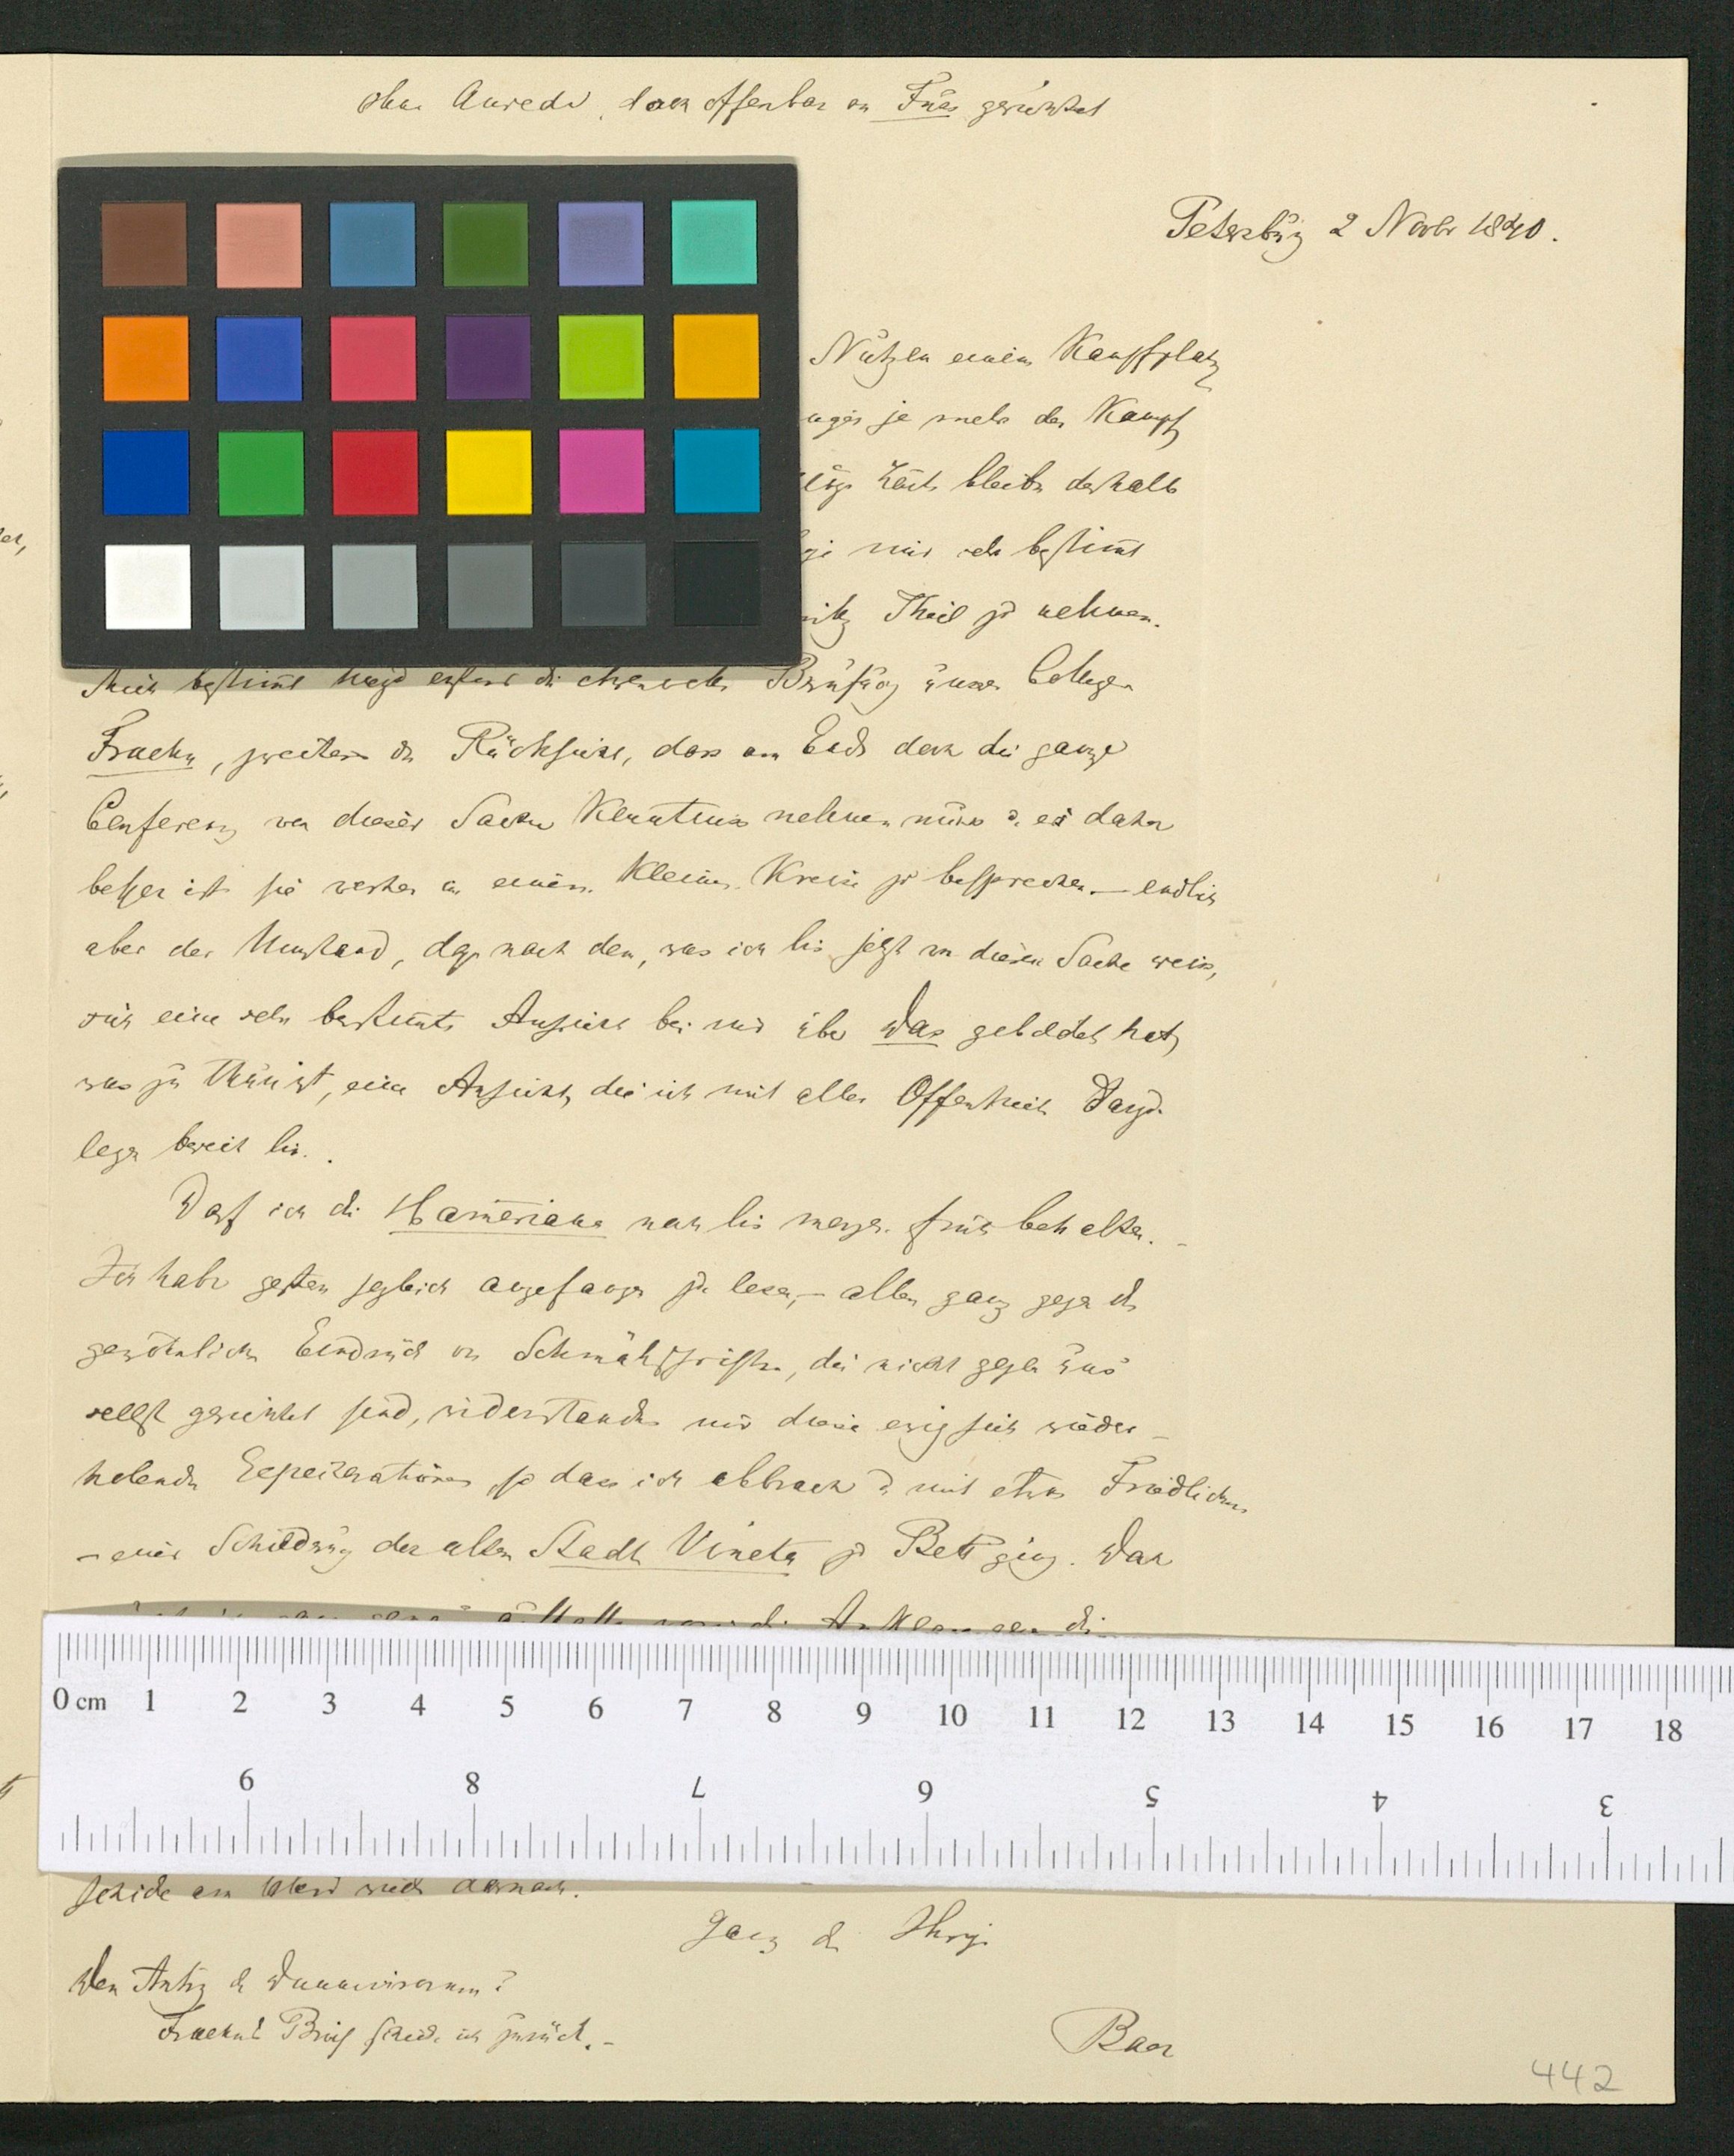 ohne Anrede, doch offenbar an Fuss gerichtet
Petersburg 2 Novbr 1840.
Nutzen einen Kampfplatz
je mehr der Kampf
bleibe deshalb
mich sehr bestimmt
Theil zu nehmen.
Mich bestimmt hiezu erstens die ehrenvolle Berufung unsers Collegen
Fraehn, zweitens die Rücksicht, dass am Ende doch die ganze
Conferenz von dieser Sache Kenntniss nehmen muss u. es daher
besser ist sie vorher in einem kleinen Kreise zu besprechen. — endlich
aber der Umstand, dass nach dem, was ich bis jetzt von dieser Sache weiss,
sich eine sehr bestimmte Ansicht bei mir über das gebildet hat,
was zu thun ist, eine Ansicht, die ich mit aller Offenheit darzu
legen bereit bin.
Darf ich die Hameriana noch bis morgen früh behalten. —
Ich habe gestern sogleich angefangen zu lesen, — allein ganz gegen den
gewöhnlichen Eindruck von Schmähschriften, die nicht gegen uns
selbst gerichtet sind, widerstanden mir diese ewig sich wieder-
holenden so dass ich abbrach u. mit etwas Friedlichem
— einer Schilderung der alten Stadt Vineta zu Bett ging. Doch
die Anklagen die
schicke am Abend nach.
Ganz der Ihrige
Den Antrag der Duumvirorum?
Fraehn's Brief sende ich zurück. —
Baer
442
0 cm 1 2 3 4 5 6 7 8 9 10 11 12 13 14 15 16 17 18
9 8 7 6 5 4 3